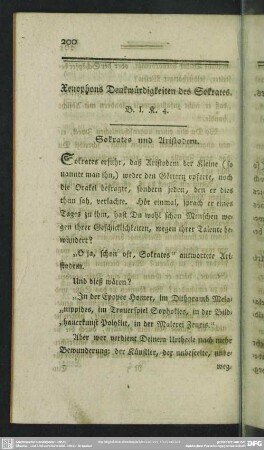 200
Xenophons Denkwürdigkeiten des Sokrates.
B. I. K. 4.
Sokrates und Aristodem.
Sokrates erfuhr, daß Aristodem der Kleine (so
nannte man ihn,) weder den Göttern opferte, noch
die Orakel befragte, sondern jeden, den er dies
thun sah, verlachte. Hör einmal, sprach er eines
Tages zu ihm, hast Du wohl schon Menschen we-
gen ihrer Geschicklichkeiten, wegen ihrer Talente be-
wundert?
„O ja, schon oft, Sokrates“ antwortete Ari-
stodem.
Und dieß wären?
„In der Epopee Homer, im Dithyramb Mela-
nippides, im Trauerspiel Sophokles, in der Bild-
hauerkunst Polyklet, in der Malerei Zeuxis.“
Aber wer verdient Deinem Urtheile nach mehr
Bewunderung: der Künstler, der unbeseelte, unbe-
weg-